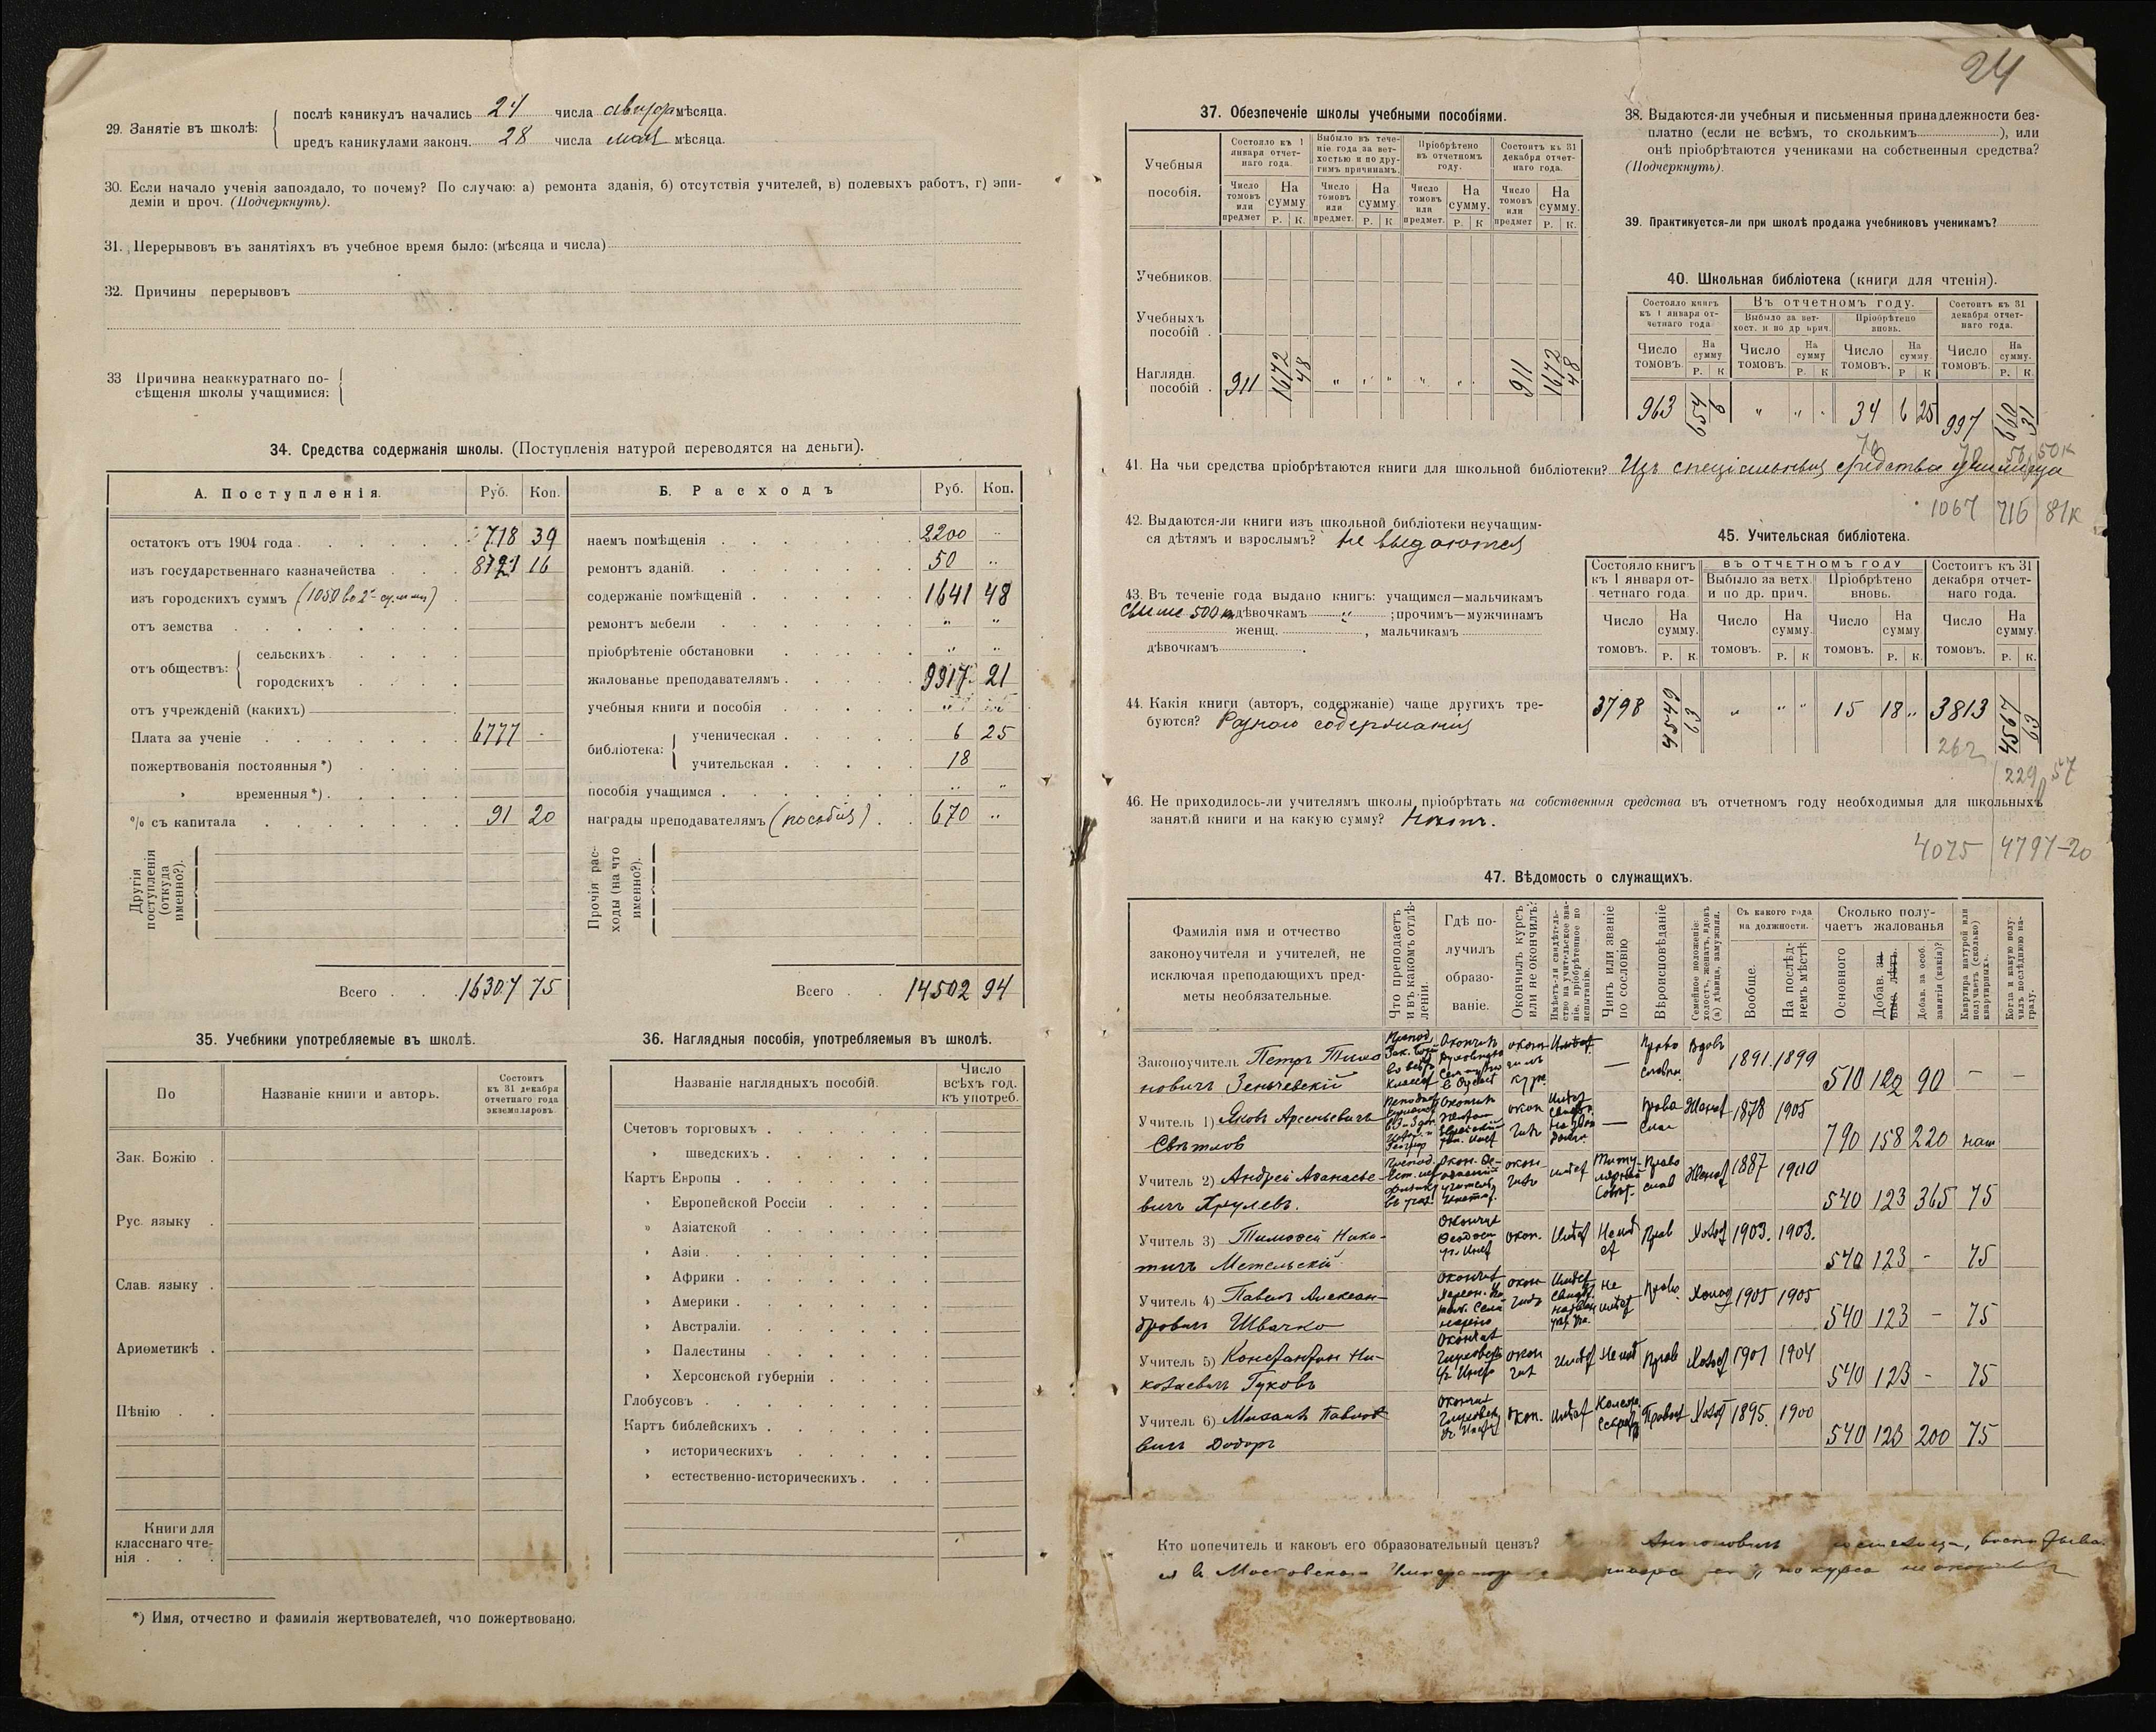 24
29. Занятіе въ школѣ:
послѣ каникулъ начались 24 числа августа мѣсяца.
предъ каникулами законч. 28 числа мая мѣсяца.
30. Если начало ученія запоздало, то почему? По случаю: а) ремонта зданія, б) отсутствія учителей, в) полевыхъ работъ, г) эпи-
деміи и проч. (Подчеркнуть).
31. Перерывовъ въ занятіяхъ въ учебное время было: (мѣсяца и числа)
32. Причины перерывовъ
33 Причина неаккуратнаго по-
сѣщенія школы учащимися:
34. Средства содержанія школы. (Поступленія натурой переводятся на деньги).
А. Поступленія. Руб. Коп.
остатокъ отъ 1904 года 718 39
изъ государственнаго казначейства 8721 16
изъ городскихъ суммъ (1050 во 2-
отъ земства
отъ обществъ: сельскихъ
городскихъ
отъ учрежденій (какихъ)
Плата за ученіе 6777 -
пожертвованія постоянныя*)
" временныя*)
% съ капитала 91 20
Другія
поступленія
(откуда
именно?).
Всего 16307 75
Б. Расходъ Руб. Коп.
наемъ помѣщенія 2200 "
ремонтъ зданій 50 "
содержаніе помѣщеній 1641 48
ремонтъ мебели " "
пріобрѣтеніе обстановки " "
жалованье преподавателямъ 9917 21
учебныя книги и пособія
библіотека: ученическая 6 25
учительская 18
пособія учащимся " "
награды преподавателямъ (пособія) 670 "
Прочія рас-
ходы (на что
именно?).
Всего 14502 94
35. Учебники употребляемые въ школѣ.
По
Названіе книги и авторъ.
Состоитъ
къ 31 декабря
отчетнаго года
экземпляровъ.
Зак. Божію
Рус. языку
Слав. языку
Ариѳметикѣ
Пѣнію
Книги для
класснаго чте-
нія
*) Имя, отчество и фамилія жертвователей, что пожертвовано.
36. Наглядныя пособія, употребляемыя въ школѣ.
Названіе наглядныхъ пособій.
Число
всѣхъ год.
къ употреб.
Счетовъ торговыхъ
" шведскихъ
Картъ Европы
" Европейской Россіи
" Азіатской
" Азіи
" Африки
" Америки
" Австраліи
" Палестины
" Херсонской губерніи
Глобусовъ
Картъ библейскихъ
" историческихъ
" естественно-историческихъ
37. Обезпеченіе школы учебными пособіями.
Учебныя
пособія.
Состояло къ 1
января отчет-
наго года.
Выбыло въ тече-
ніе года за вет-
хостью и по дру-
гимъ причинамъ.
Пріобрѣтено
въ отчетномъ
году.
Состоитъ къ 31
декабря отчет-
наго года.
Число
томовъ
или
предмет.
На
сумму
Р. К.
Число
томовъ
или
предмет.
На
сумму.
Р. К
Число
томовъ
или
предмет.
На
сумму.
Р. К
Число
томовъ
или
предмет
На
сумму.
Р. К.
Учебниковъ.
Учебныхъ
пособій
Наглядн.
пособій 911 1672 48 " " " " " " 911 1672 48
38. Выдаются-ли учебныя и письменныя принадлежности без-
платно (если не всѣмъ, то сколькимъ), или
онѣ пріобрѣтаются учениками на собственныя средства?
(Подчеркнуть).
39. Практикуется-ли при школѣ продажа учебниковъ ученикамъ?
40. Школьная библіотека (книги для чтенія).
Состояло книгъ
къ 1 января от-
четнаго года
Въ отчетномъ году.
Выбыло за вет-
хост. и по др прич.
Пріобрѣтено
вновь.
Состоитъ къ 31
декабря отчет-
наго года.
Число
томовъ.
На
сумму
Р. К
Число
томовъ.
На
сумму
Р. К
Число
томовъ.
На
сумму.
Р К
Число
томовъ.
На
сумму.
Р. К.
963 654 6 " " " 34 6 25 997 660 31
70 56 50к
41. На чьи средства пріобрѣтаются книги для школьной библіотеки? Изъ спеціальныхъ средствъ училища
1067 716 81к
42. Выдаются-ли книги изъ школьной библіотеки неучащим-
ся дѣтямъ и взрослымъ? Не выдаются
43. Въ теченіе года выдано книгъ: учащимся—мальчикамъ
свыше 500 дѣвочкамъ " ; прочимъ—мужчинамъ
женщ. , мальчикамъ
дѣвочкамъ .
44. Какія книги (авторъ, содержаніе) чаще другихъ тре-
буются? Разнаго содержанія
45. Учительская библіотека.
Состояло книгъ
къ 1 января от-
четнаго года
ВЪ ОТЧЕТНОМЪ ГОДУ
Выбыло за ветх.
и по др. прич.
Пріобрѣтено
вновь.
Состоитъ къ 31
декабря отчет-
наго года.
Число
томовъ.
На
сумму.
Р. К.
Число
томовъ.
На
сумму.
Р. К
Число
томовъ.
На
сумму
Р. К.
Число
томовъ.
На
сумму.
Р. К.
3798 4549 63 " " " 15 18 " 3813 4567 63
262 229 57
46. Не приходилось-ли учителямъ школы пріобрѣтать на собственныя средства въ отчетномъ году необходимыя для школьныхъ
занятій книги и на какую сумму? Нѣтъ.
4075 4797-20
47. Вѣдомость о служащихъ.
Фамилія имя и отчество
законоучителя и учителей, не
исключая преподающихъ пред-
меты необязательные.
Что преподаетъ
и въ какомъ отдѣ-
леніи.
Гдѣ по-
лучилъ
образо-
ваніе.
Окончилъ курсъ
или не окончилъ?
Имѣетъ-ли свидѣтель-
ство на учительское зва-
ніе, пріобрѣтенное по
испытанію.
Чинъ или званіе
по сословію
Вѣроисповѣданіе
Семейное положеніе:
холостъ, женатъ, вдовъ
(а) дѣвица, замужняя.
Съ какого года
на должности.
Вообще.
На послѣд-
немъ мѣстѣ
Сколько полу-
чаетъ жалованья
Основного
Добав. за
лѣтъ.
Добав. за особ.
занятія (какія)?
Квартира натурой или
получаетъ (сколько)
квартирныхъ.
Когда и какую полу-
чилъ послѣднюю на-
граду.
Законоучитель Петръ Тимо
новичъ Зеньчевскій — Вдовъ 1891 1899 510 122 90 — —
Учитель 1) Яковъ Арсеньевичъ
Свѣтловъ — 1878 1905 790 158 220 нат
Учитель 2) Андрей Аѳанасье-
вичъ Крулевъ. 1887 1900 540 123 365 75
Учитель 3) Тимоѳей Ники-
тичъ Метельскій окон. 1903. 1903. 540 123 - 75
Учитель 4) Павелъ Алексан-
дровичъ Швачко 1905 1905 540 123 — 75
Учитель 5) Константинъ Ни-
колаевичъ Гуковъ 1901 1904 540 123 - 75
Учитель 6) Михаилъ Павлов
вичъ окон. 1895. 1900 540 123 200 75
Кто попечитель и каковъ его образовательный цензъ? Антоновичъ
Московскомъ